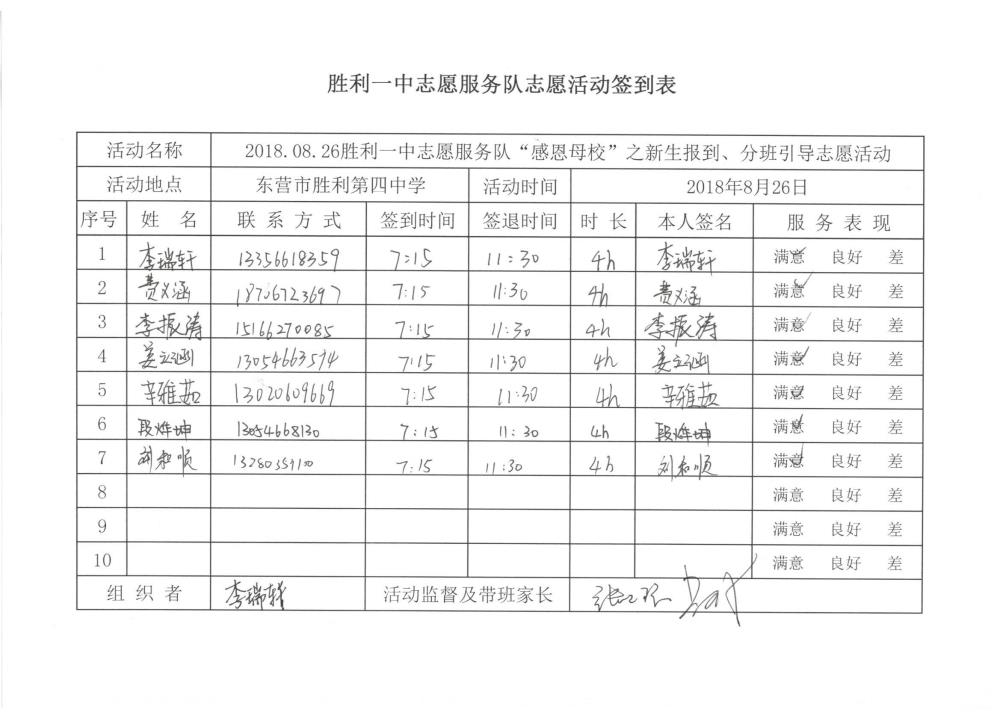 胜利一中志愿服务队志愿活动签到表
活动名称 2018.08.26胜利一中志愿服务队“感恩母校”之新生报到、分班引导志愿活动
活动地点 东营市胜利第四中学 活动时间 2018年8月26日
序号 姓 名 联系方式 签到时间 签退时间 时 长 本人签名 服务表现
1 李瑞轩 13356618359 7:15 11:30 4h 李瑞轩 满意 良好 差
2 费义涵 7:15 11:30 4h 费义涵 满意 良好 差
3 李振涛 15166270085 7:15 11:30 4h 李振涛 满意 良好 差
4 姜立涵 13054663594 7:15 11:30 4h 姜立涵 满意 良好 差
5 辛雅茹 13020609669 7:15 11:30 4h 辛雅茹 满意 良好 差
6 段烨坤 13054668130 7:15 11:30 4h 段烨坤 满意 良好 差
7 刘和顺 7:15 11:30 4h 刘和顺 满意 良好 差
8 满意 良好 差
9 满意 良好 差
10 满意 良好 差
组织者 李瑞轩 活动监督及带班家长